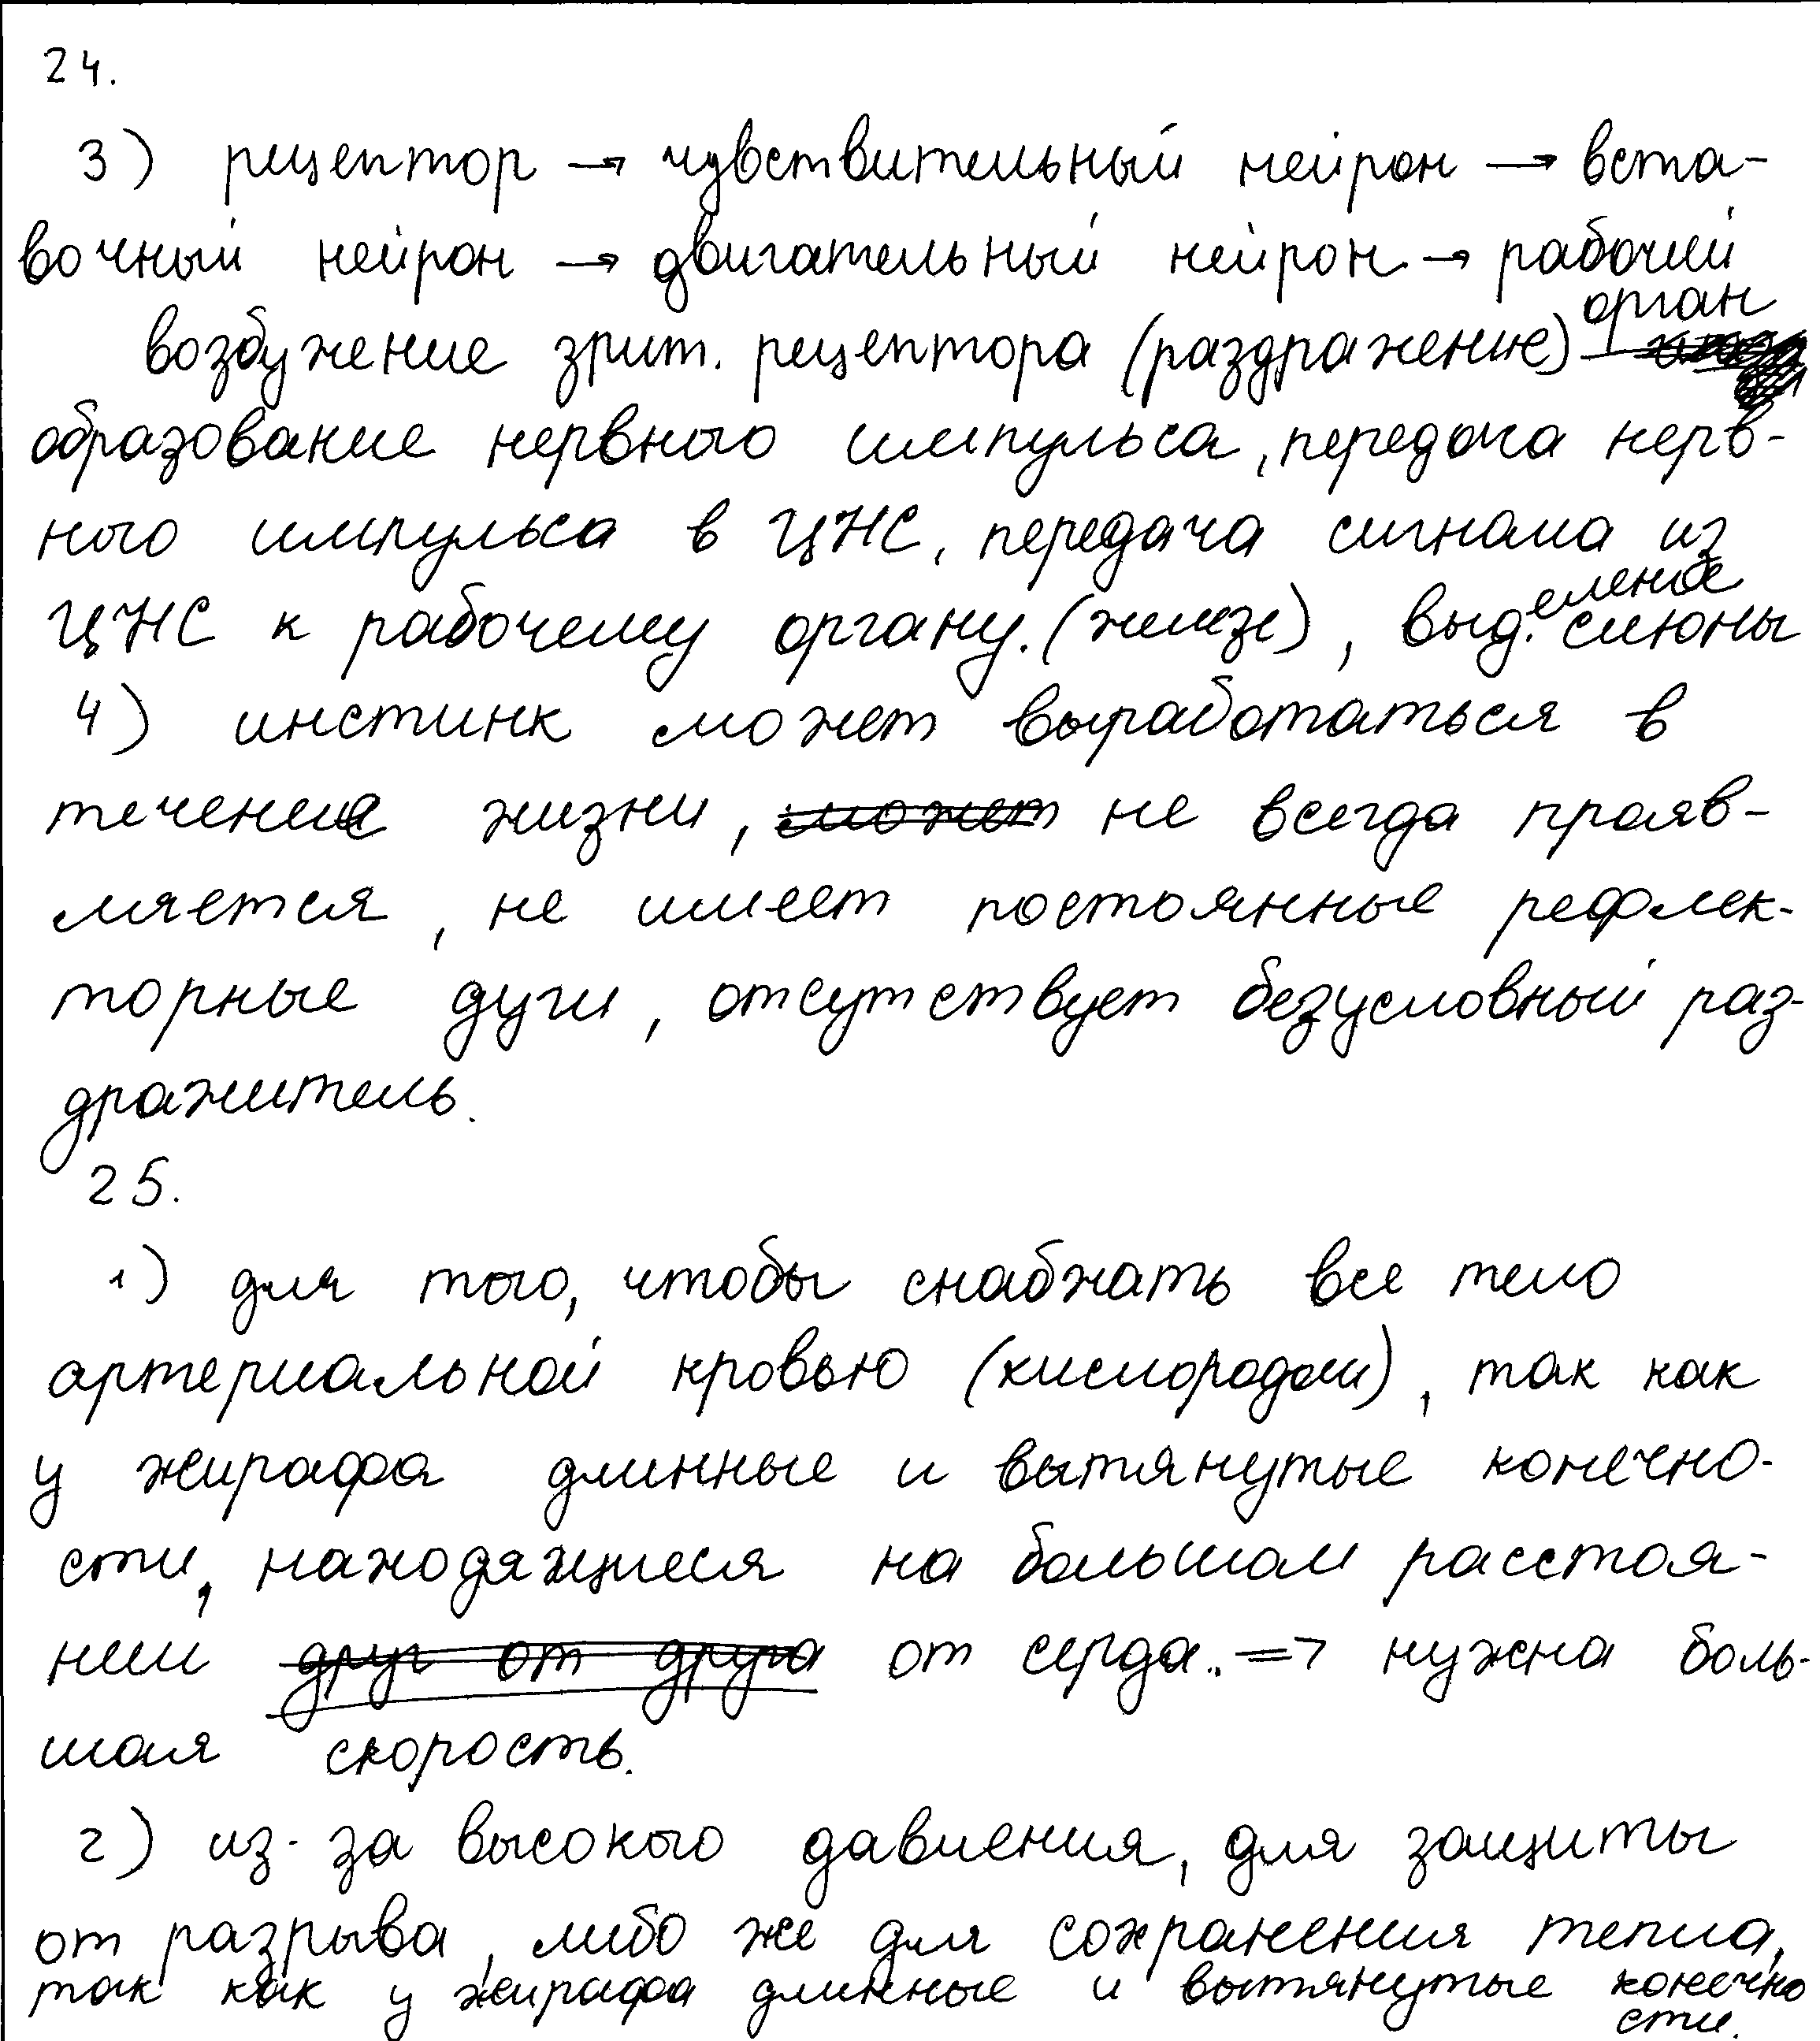 24.
3) рецептор → чувствительный нейрон → вста-
вочный нейрон → двигательный нейрон → рабочий
орган
возбужение зрит. рецептора (раздражение)
образование нервного импульса, передача нерв-
ного импульса в ЦНС, передача сигнала из
ЦНС к рабочему органу. (железе), выд.еление слюны
4) инстинк может выработаться в
течение жизни, может не всегда прояв-
ляется, не имеет постоянные рефлек-
торные дуги, отсутствует безусловный раз-
дражитель.
25.
1) для того, чтобы снабжать все тело
артериальной кровью (кислородом), так как
у жирафа длинные и вытянутые конечно-
сти, находящиеся на большом расстоя-
нии друг от друга от серда. => нужна боль-
шая скорость.
2) из-за высокого давления, для защиты
от разрыва, либо же для сохранения тепла,
так как у жирафа длинные и вытянутые конечно
сти.